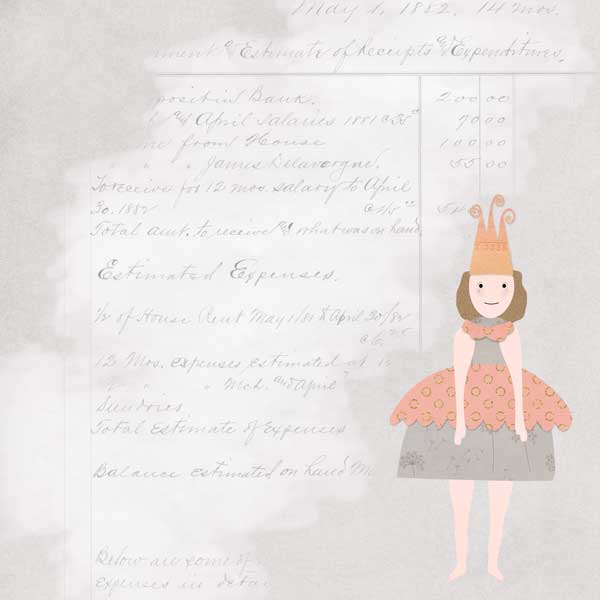 May 1, 1882. 14 mos.
ment & Estimate of Receipts & Expenditures.
posit in Bank. 200 00
& April Salaries 1881 @ 35 70 00
from House 100 00
" " " James Delavergne. 55 00
To receive for 12 mos. salary to April
30. 1882
Total amt. to receive & what was on hand.
Estimated Expenses.
of House Rent May 1/81 & April 30/82
12 Mos. expenses estimated at
" " " Mch. and April "
Sundries
Total Estimate of Expences
Balance estimated on hand
Below are some of
expenses in detai